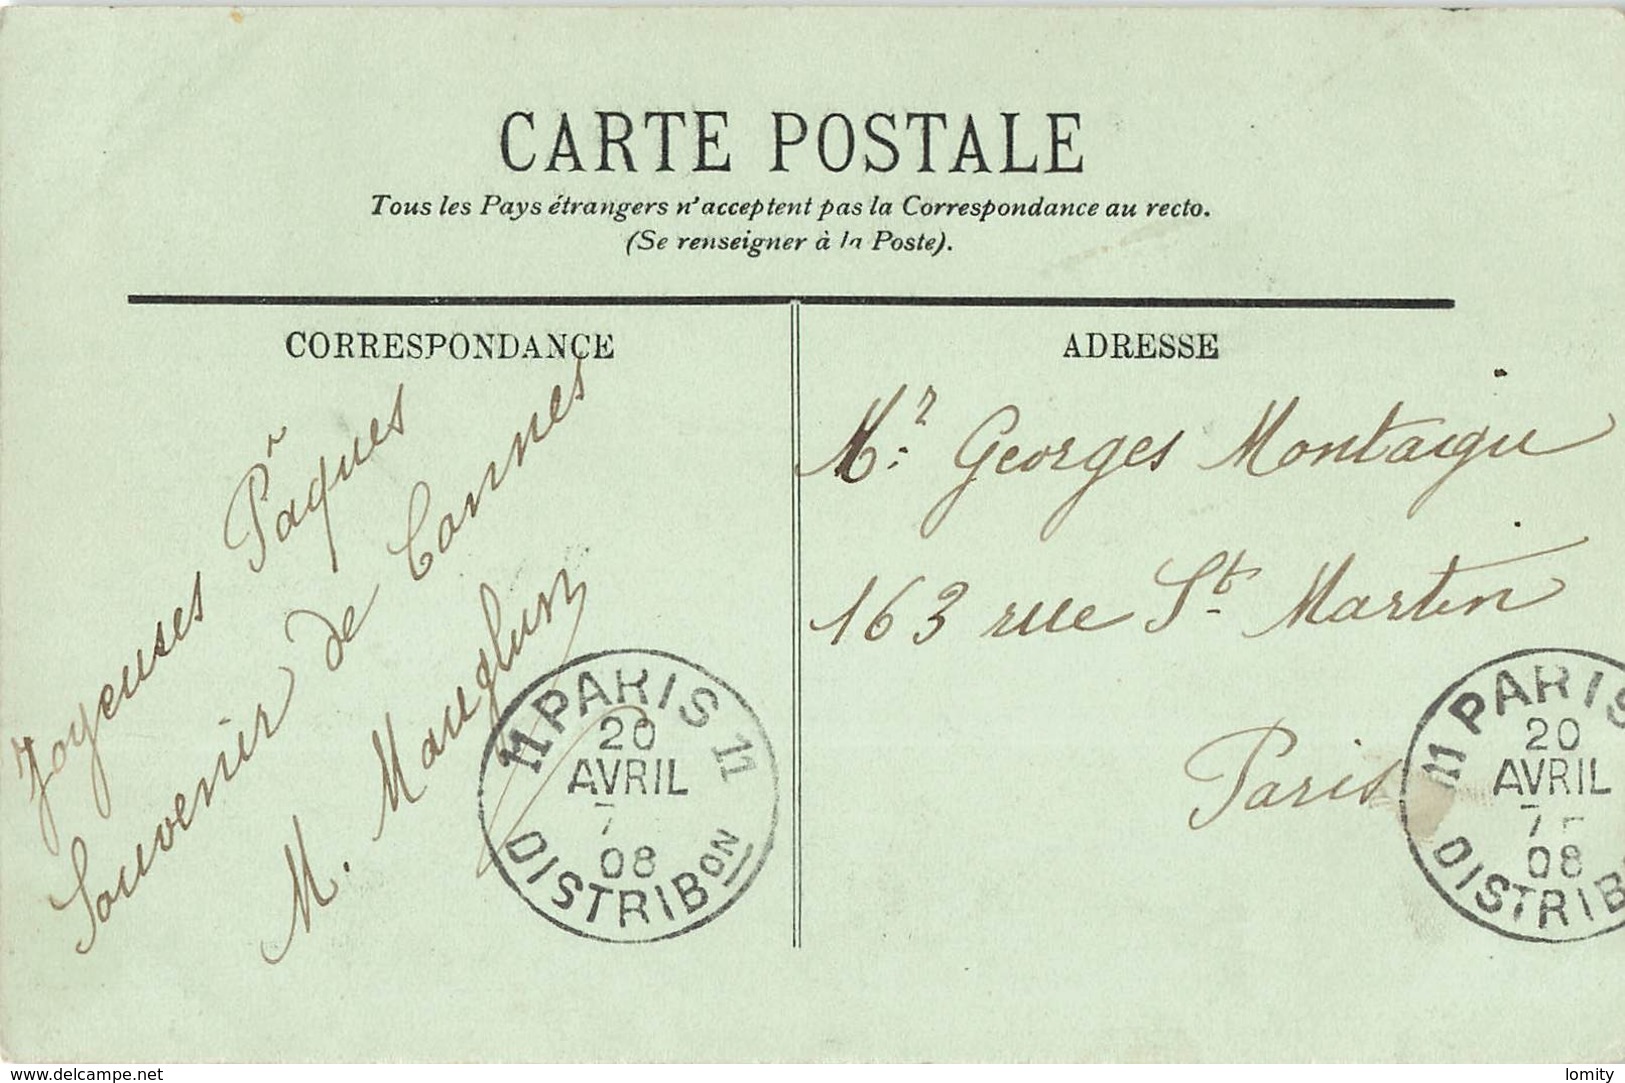 CARTE POSTALE
Tous les Pays étrangers n'acceptent pas la Correspondance au recto.
(Se renseigner à la Poste).
CORRESPONDANCE
Joyeuses Pâques
Souvenir de Cannes
M.
ADRESSE
Mr. Georges Montaigu
163 rue St. Martin
Paris
11 PARIS 11
20
AVRIL
7
08
DISTRIBON
11 PARIS
20
AVRIL
7
08
DISTRIB
www.delcampe.net
lomity